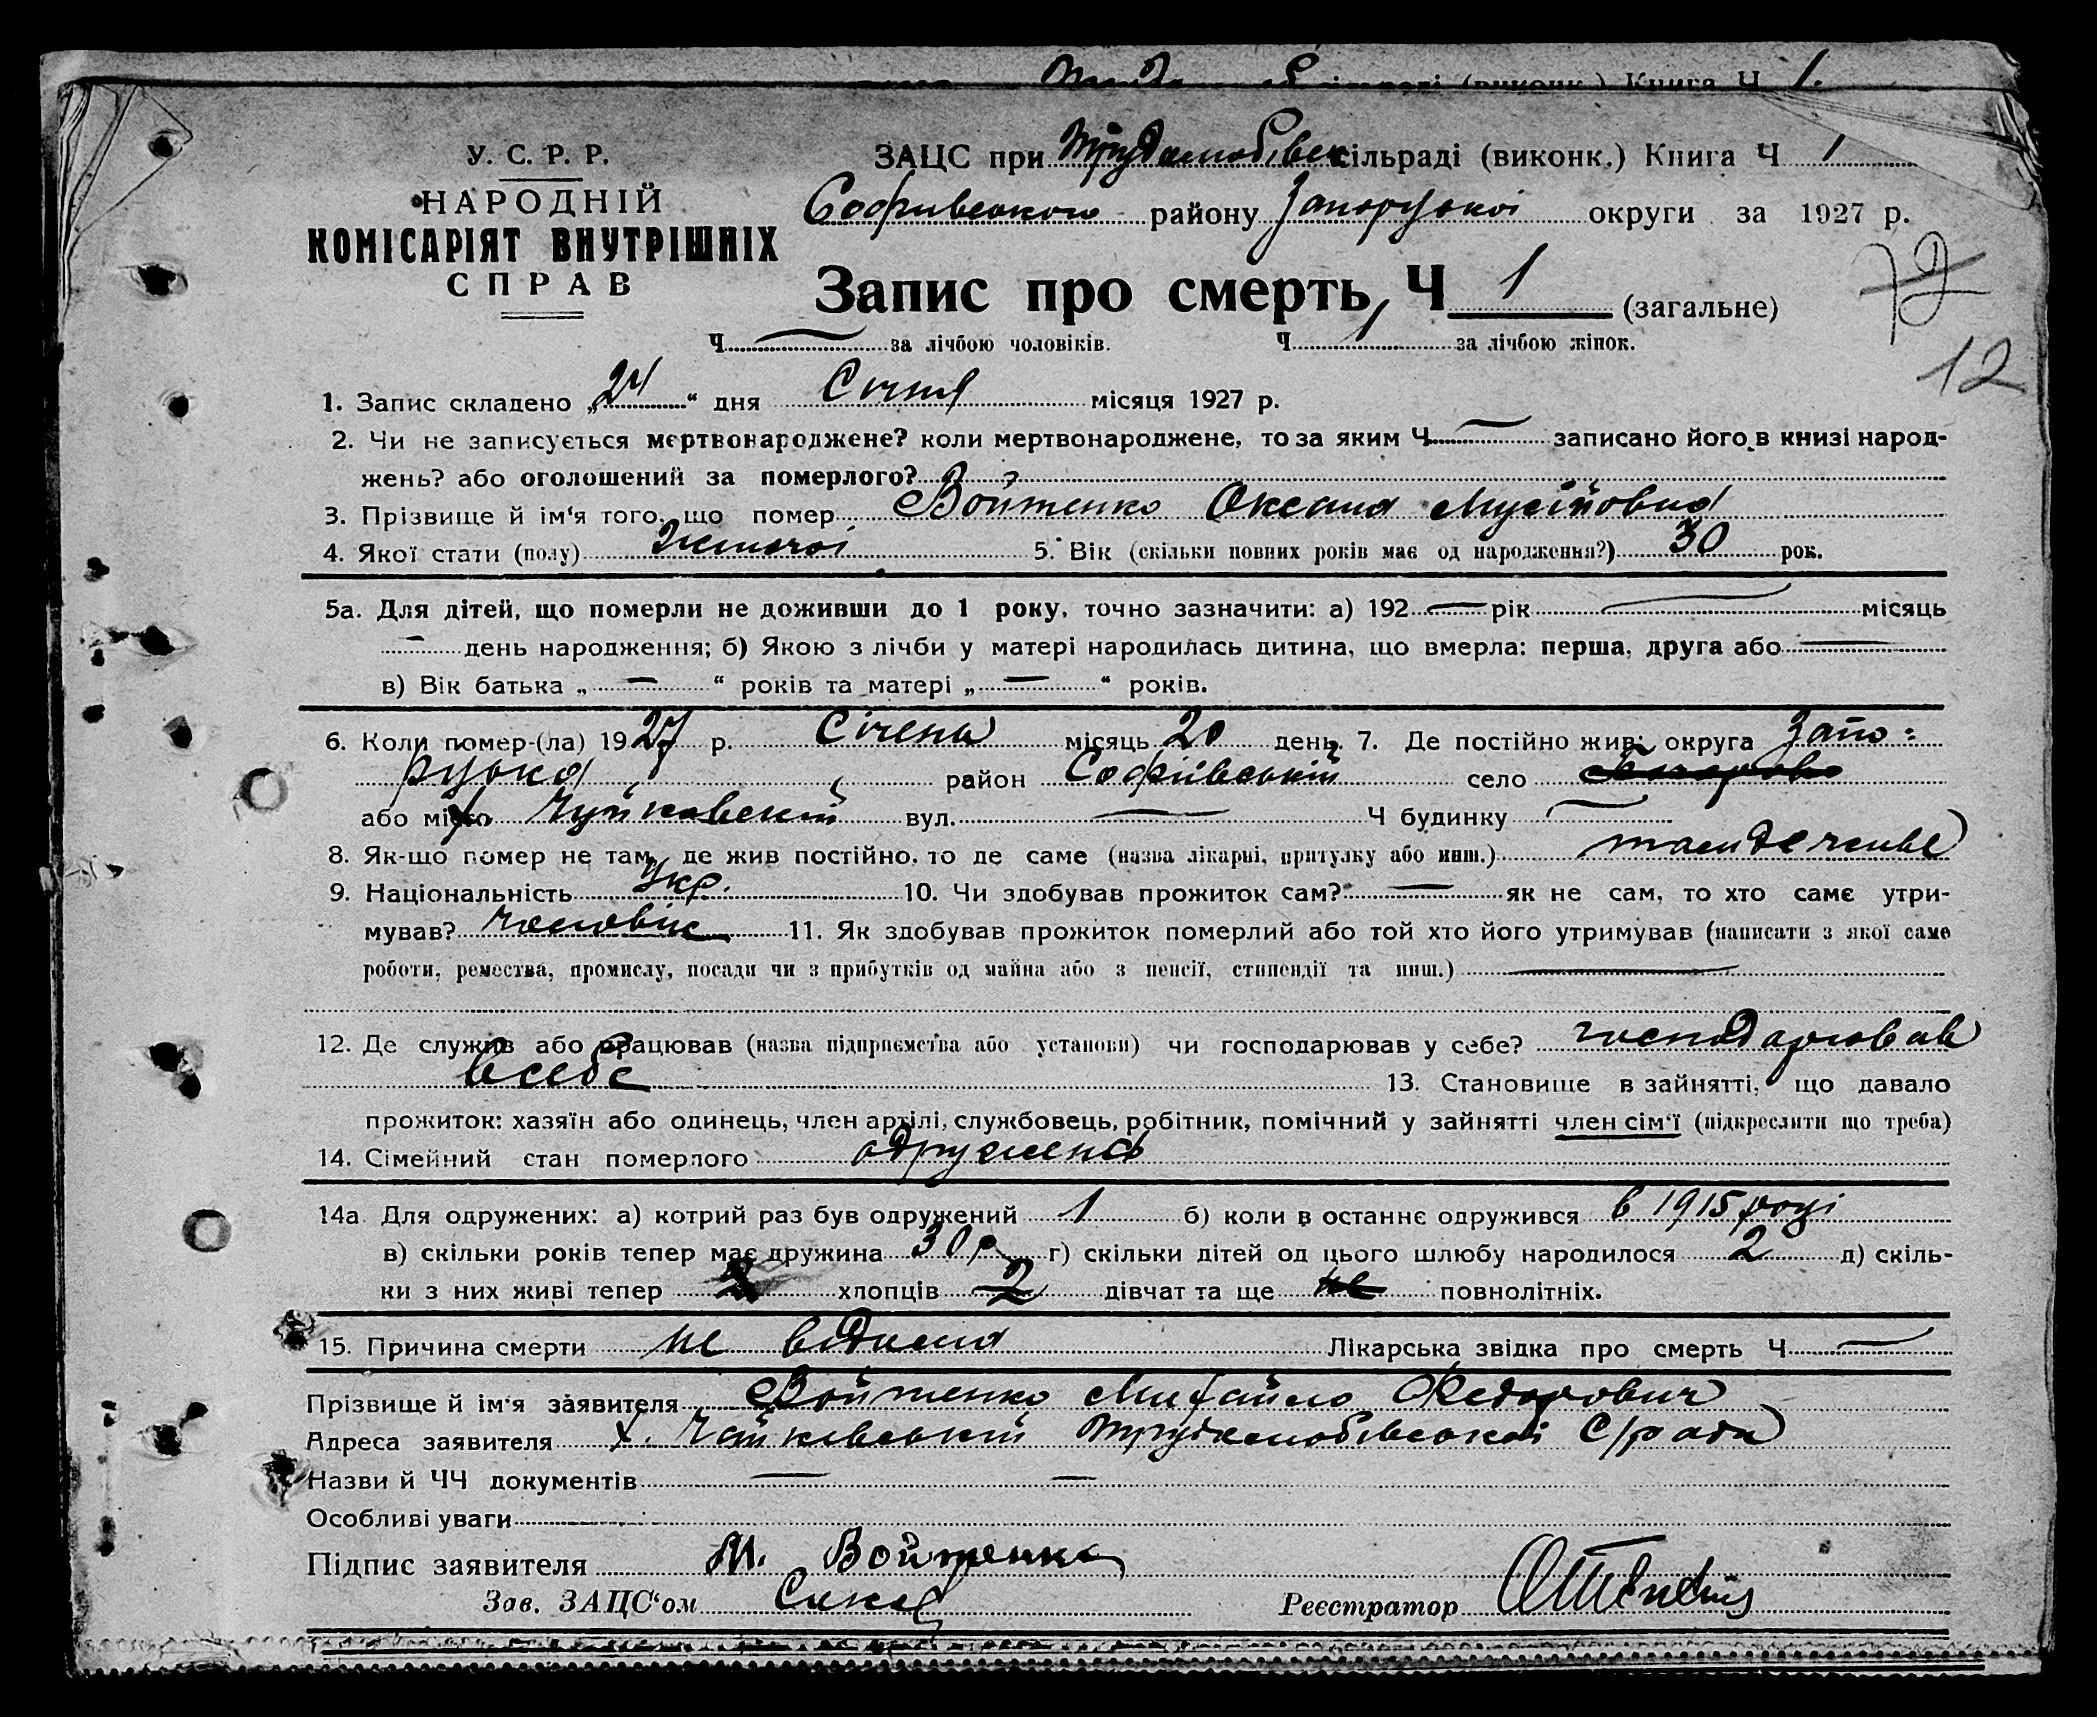 Книга Ч 1.
У. С. Р. Р.
НАРОДНІЙ
КОМІСАРІЯТ ВНУТРІШНІХ
СПРАВ
ЗАЦС при Трудолюбівск сільраді (виконк.) Книга Ч 1
Софиивського району Запоруської округи за 1927 р.
Запис про смерть, Ч 1 (загальне)
72
Ч — за лічбою чоловіків. Ч 1 за лічбою жінок.
12
1. Запис складено „24“ дня Січня місяця 1927 р.
2. Чи не записується мертвонароджене? коли мертвонароджене, то за яким Ч — записано його в книзі народ-
жень? або оголошений за померлого?
3. Прізвище й ім'я того, що помер Войтенко Оксана Мусійовна
4. Якої стати (полу) жіночої 5. Вік (скільки повних років має од народження?) 30 рок.
5а. Для дітей, що померли не доживши до 1 року, точно зазначити: а) 192 — рік — місяць
— день народження; б) Якою з лічби у матері народилась дитина, що вмерла: перша, друга або —
в) Вік батька „ — “ років та матері „ — “ років.
6. Коли помер-(ла) 1927 р. Січень місяць 20 день. 7. Де постійно жив: округа Запо-
руська район Софіївський село
або місто вул. — Ч будинку —
8. Як-що помер не там, де жив постійно, то де саме (назва лікарні, притулку або инш.) там де жив
9. Національність Укр. 10. Чи здобував прожиток сам? — як не сам, то хто саме утри-
мував? чоловік 11. Як здобував прожиток померлий або той хто його утримував (написати з якої саме
роботи, ремества, промислу, посади чи з прибутків од майна або з пенсії, стипендії та инш.) —
12. Де служив або працював (назва підприємства або установи) чи господарював у себе? господарював
в себе 13. Становище в зайнятті, що давало
прожиток: хазяїн або одинець, член артілі, службовець, робітник, помічний у зайнятті член сім'ї (підкреслити що треба)
14. Сімейний стан померлого одружень
14а. Для одружених: а) котрий раз був одружений 1 б) коли в останнє одружився в 1915 році
в) скільки років тепер має дружина 30 р г) скільки дітей од цього шлюбу народилося 2 д) скіль-
ки з них живі тепер хлопців 2 дівчат та ще не повнолітніх.
15. Причина смерти не відома Лікарська звідка про смерть Ч —
Прізвище й ім'я заявителя Войтенко Михайло Федорович
Адреса заявителя х. Чайківський Трудолюбівської С/ради
Назви й ЧЧ документів — —
Особливі уваги
Підпис заявителя М. Войтенко
Зав. ЗАЦС'ом
Реєстратор